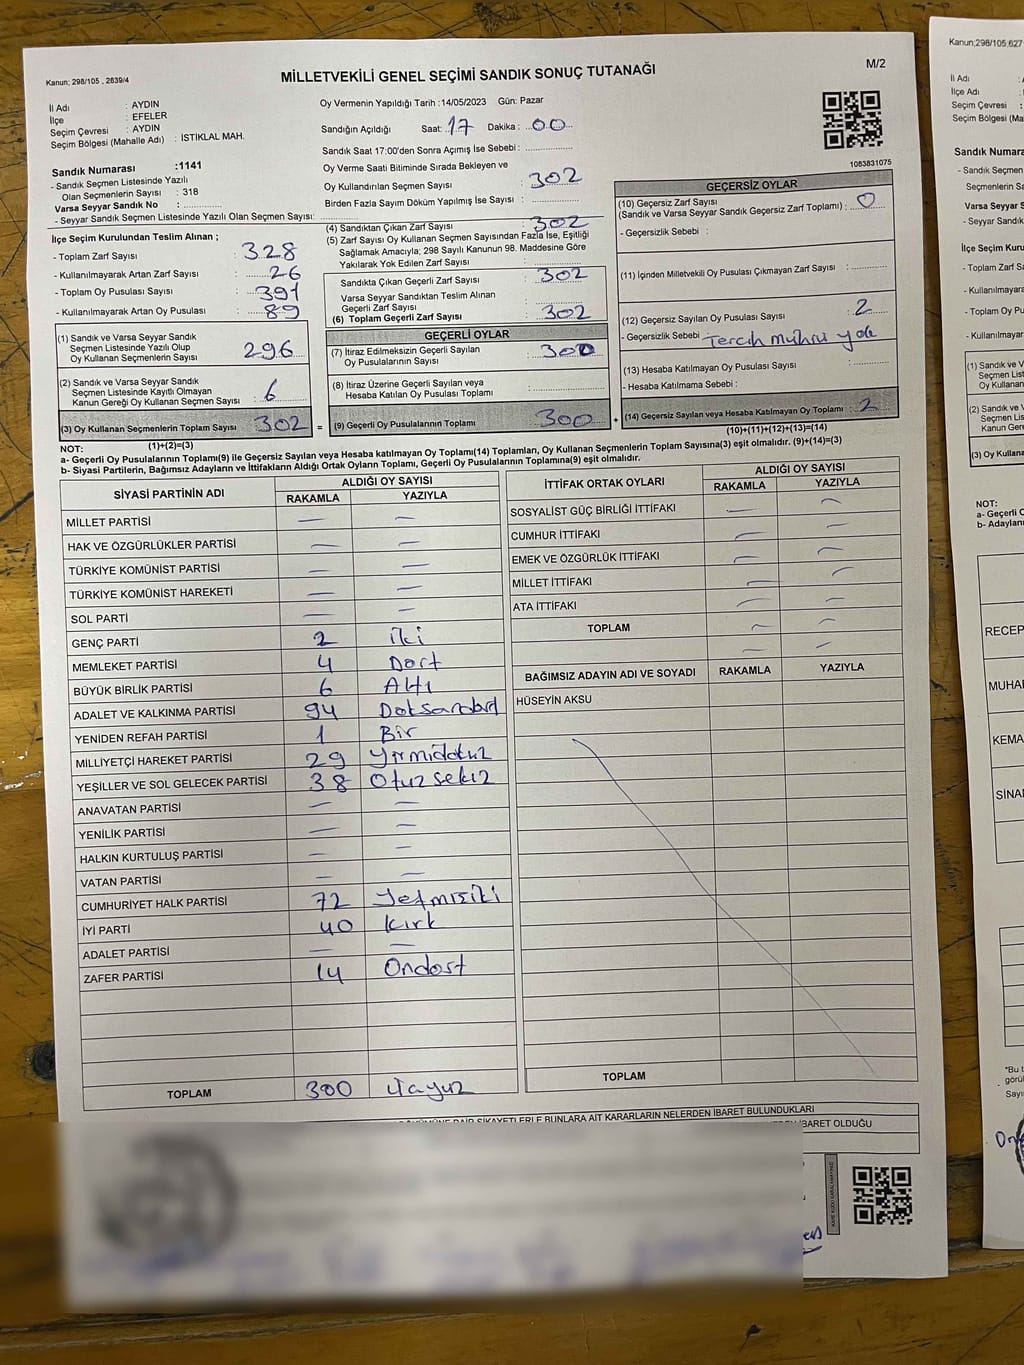 Kanun; 298/105 , 2839/4
MİLLETVEKİLİ GENEL SEÇİMİ SANDIK SONUÇ TUTANAĞI
M/2
İl Adı : AYDIN
İlçe : EFELER
Seçim Çevresi : AYDIN
Seçim Bölgesi (Mahalle Adı) : İSTİKLAL MAH.
Oy Vermenin Yapıldığı Tarih :14/05/2023 Gün: Pazar
Sandığın Açıldığı Saat: 17 Dakika : 00
Sandık Saat 17:00'den Sonra Açımış İse Sebebi :
Sandık Numarası :1141
- Sandık Seçmen Listesinde Yazılı
Olan Seçmenlerin Sayısı : 318
Varsa Seyyar Sandık No :
- Seyyar Sandık Seçmen Listesinde Yazılı Olan Seçmen Sayısı:
Oy Verme Saati Bitiminde Sırada Bekleyen ve
Oy Kullandırılan Seçmen Sayısı : 302
Birden Fazla Sayım Döküm Yapılmış İse Sayısı :
1083831075
İlçe Seçim Kurulundan Teslim Alınan ;
- Toplam Zarf Sayısı : 328
- Kullanılmayarak Artan Zarf Sayısı : 26
- Toplam Oy Pusulası Sayısı : 391
- Kullanılmayarak Artan Oy Pusulası : 89
(1) Sandık ve Varsa Seyyar Sandık
Seçmen Listesinde Yazılı Olup
Oy Kullanan Seçmenlerin Sayısı : 296
(2) Sandık ve Varsa Seyyar Sandık
Seçmen Listesinde Kayıtlı Olmayan
Kanun Gereği Oy Kullanan Seçmen Sayısı : 6
(3) Oy Kullanan Seçmenlerin Toplam Sayısı : 302 =
(4) Sandıktan Çıkan Zarf Sayısı : 302
(5) Zarf Sayısı Oy Kullanan Seçmen Sayısından Fazla İse, Eşitliği
Sağlamak Amacıyla; 298 Sayılı Kanunun 98. Maddesine Göre
Yakılarak Yok Edilen Zarf Sayısı :
Sandıkta Çıkan Geçerli Zarf Sayısı : 302
Varsa Seyyar Sandıktan Teslim Alınan
Geçerli Zarf Sayısı :
(6) Toplam Geçerli Zarf Sayısı : 302
GEÇERLİ OYLAR
(7) İtiraz Edilmeksizin Geçerli Sayılan
Oy Pusulalarının Sayısı : 300
(8) İtiraz Üzerine Geçerli Sayılan veya
Hesaba Katılan Oy Pusulası Toplamı :
(9) Geçerli Oy Pusulalarının Toplamı : 300 +
GEÇERSİZ OYLAR
(10) Geçersiz Zarf Sayısı
(Sandık ve Varsa Seyyar Sandık Geçersiz Zarf Toplamı) : 0
- Geçersizlik Sebebi :
(11) İçinden Milletvekili Oy Pusulası Çıkmayan Zarf Sayısı :
(12) Geçersiz Sayılan Oy Pusulası Sayısı : 2
- Geçersizlik Sebebi : Tercih mührü yok
(13) Hesaba Katılmayan Oy Pusulası Sayısı :
- Hesaba Katılmama Sebebi :
(14) Geçersiz Sayılan veya Hesaba Katılmayan Oy Toplamı : 2
(10)+(11)+(12)+(13)=(14)
NOT: (1)+(2)=(3)
a- Geçerli Oy Pusulalarının Toplamı(9) ile Geçersiz Sayılan veya Hesaba katılmayan Oy Toplamı(14) Toplamları, Oy Kullanan Seçmenlerin Toplam Sayısına(3) eşit olmalıdır. (9)+(14)=(3)
b- Siyasi Partilerin, Bağımsız Adayların ve İttifakların Aldığı Ortak Oyların Toplamı, Geçerli Oy Pusulalarının Toplamına(9) eşit olmalıdır.
SİYASİ PARTİNİN ADI ALDIĞI OY SAYISI
RAKAMLA YAZIYLA
MİLLET PARTİSİ — —
HAK VE ÖZGÜRLÜKLER PARTİSİ — —
TÜRKİYE KOMÜNİST PARTİSİ — —
TÜRKİYE KOMÜNİST HAREKETİ — —
SOL PARTİ — —
GENÇ PARTİ 2 iki
MEMLEKET PARTİSİ 4 Dört
BÜYÜK BİRLİK PARTİSİ 6 Altı
ADALET VE KALKINMA PARTİSİ 94
YENİDEN REFAH PARTİSİ 1 Bir
MİLLİYETÇİ HAREKET PARTİSİ 29 Yirmidokuz
YEŞİLLER VE SOL GELECEK PARTİSİ 38 Otuz sekiz
ANAVATAN PARTİSİ — —
YENİLİK PARTİSİ — —
HALKIN KURTULUŞ PARTİSİ — —
VATAN PARTİSİ — —
CUMHURİYET HALK PARTİSİ 72 Yetmişiki
İYİ PARTİ 40 Kırk
ADALET PARTİSİ — —
ZAFER PARTİSİ 14 Ondört
TOPLAM 300 Üçyüz
İTTİFAK ORTAK OYLARI ALDIĞI OY SAYISI
RAKAMLA YAZIYLA
SOSYALİST GÜÇ BİRLİĞİ İTTİFAKI — —
CUMHUR İTTİFAKI — —
EMEK VE ÖZGÜRLÜK İTTİFAKI — —
MİLLET İTTİFAKI — —
ATA İTTİFAKI — —
TOPLAM — —
BAĞIMSIZ ADAYIN ADI VE SOYADI RAKAMLA YAZIYLA
HÜSEYİN AKSU
TOPLAM
ŞİKAYETLERLE BUNLARA AİT KARARLARIN NELERDEN İBARET BULUNDUKLARI
İBARET OLDUĞU
Kanun;298/105,627
İl Adı :
İlçe Adı :
Seçim Çevresi :
Seçim Bölgesi (Ma
Sandık Numara
- Sandık Seçmen
Seçmenlerin Sa
Varsa Seyyar S
- Seyyar Sandık
İlçe Seçim Kuru
- Toplam Zarf Sa
- Kullanılmayara
- Toplam Oy Pus
- Kullanılmayara
(1) Sandık ve V
Seçmen List
Oy Kullanan
(2) Sandık ve Va
Seçmen List
Kanun Gere
(3) Oy Kullana
NOT:
a- Geçerli O
b- Adayları
RECEP
MUHA
KEMA
SİNA
"Bu t
görül
Sayı